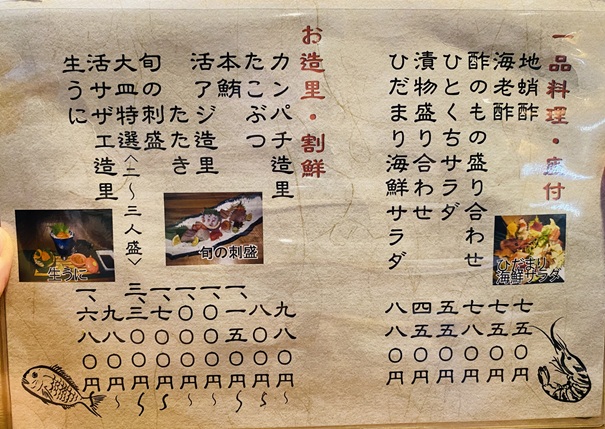 一品料理・座付
地蛸酢 七五〇円
海老酢 七五〇円
酢のもの盛り合わせ 七八〇円
ひとくちサラダ 五五〇円
漬物盛り合わせ 四五〇円
ひだまり海鮮サラダ 八八〇円
ひだまり
海鮮サラダ
お造里・割鮮
カンパチ造里 九八〇円
たこぶつ 八〇〇円
本鮪 一、一五〇円〜
活アジ造里 一、〇〇〇円〜
たたき 一、〇〇〇円〜
旬の刺盛 一、七〇〇円〜
大皿特選〈二〜三人盛〉 三、三〇〇円〜
活サザエ造里 九八〇円〜
生うに 一、六八〇円
旬の刺盛
生うに